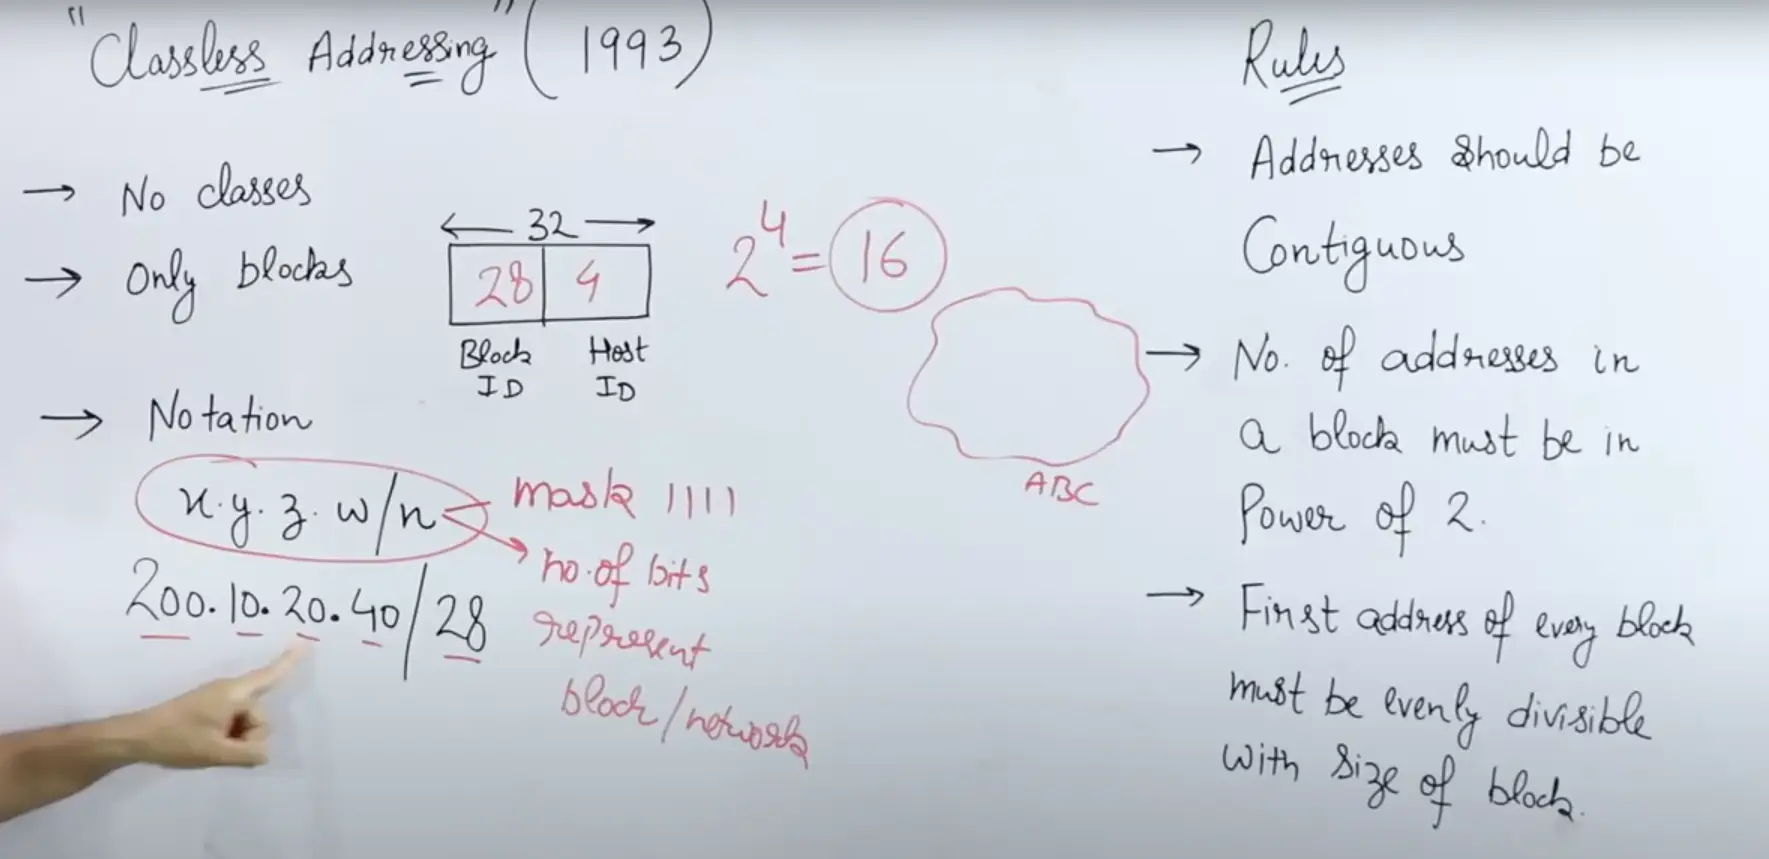 "Classless Addressing" (1993)
→ No classes
→ Only blocks
← 32 →
28 4
Block ID
Host ID
2^4 = 16
→ Notation
x.y.z.w/n
mask 1111
no. of bits
represent
block/network
200.10.20.40/28
ABC
Rules
→ Addresses should be
Contiguous
→ No. of addresses in
a block must be in
Power of 2.
→ First address of every block
must be evenly divisible
with size of block.